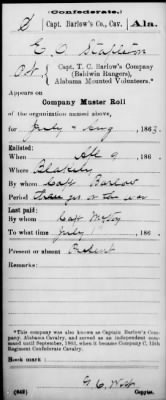 (Confederate.)
S Capt. Barlow's Co., Cav. Ala.
E. O. Stapleton
Pvt, Capt. T. C. Barlow's Company
(Baldwin Rangers),
Alabama Mounted Volunteers.*
Appears on
Company Muster Roll
of the organization named above,
for July & Aug, 186
Enlisted:
When 9, 186 .
Where Blakely
By whom Capt Barlow
Period three yrs or the war
Last paid:
By whom Capt
To what time July 1, 186 .
Present or absent Present
Remarks:
*This company was also known as Captain Barlow's Company, Alabama Cavalry, and served as an independent command until September, 1864, when it became Company C, 15th Regiment Confederate Cavalry.
Book mark:
(642) Copyist.